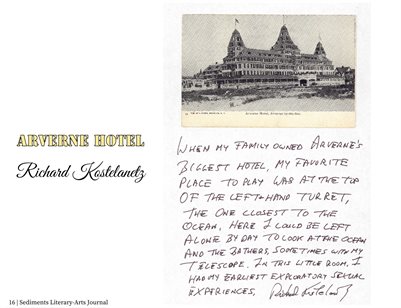 Arverne Hotel, Arverne-by-the-Sea.
ARVERNE HOTEL
Richard Kostelanetz
WHEN MY FAMILY OWNED ARVERNE'S
BIGGEST HOTEL, MY FAVORITE
PLACE TO PLAY WAS AT THE TOP
OF THE LEFT-HAND TURRET,
THE ONE CLOSEST TO THE
OCEAN. HERE I COULD BE LEFT
ALONE BY DAY TO LOOK AT THE OCEAN
AND THE BATHERS, SOMETIMES WITH MY
TELESCOPE. IN THIS LITTLE ROOM, I
HAD MY EARLIEST EXPLORATORY SEXUAL
EXPERIENCES. Richard Kostelanetz
16 | Sediments Literary-Arts Journal